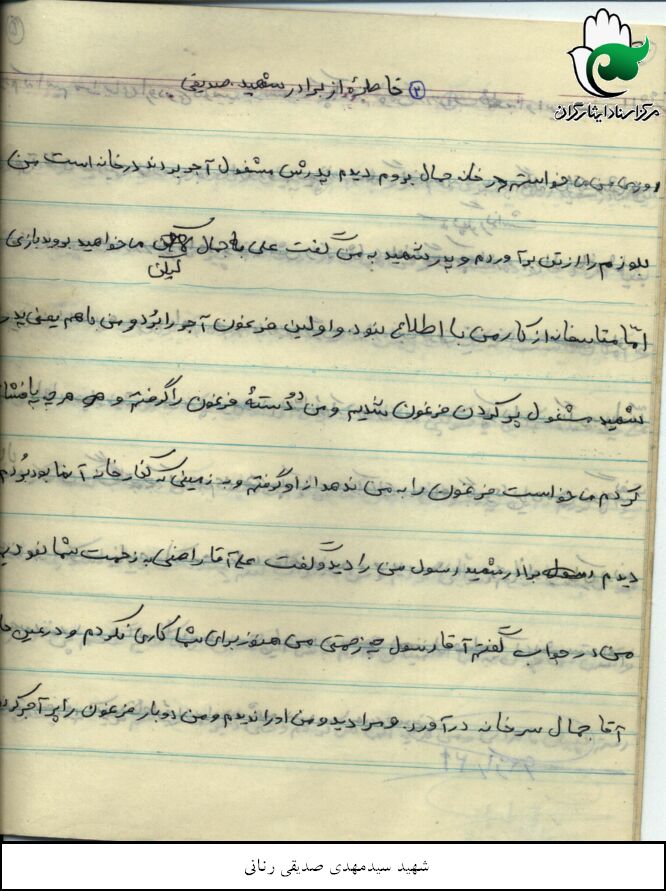 مرکز اسناد ایثارگران
۵
② خاطره از برادر شهید صدیقی
روزی من می خواستم در خانه جمال بروم دیدم پدرش مشغول آجر بردن در خانه است من
بلوزم را از تن برآوردم و پدر شهید به من گفت علی با جمال گیلن می خواهید بروید بازی
امّا متاسفانه از کار من با اطلاع نبود و اولین فرغون آجر را بُرد و من باهم یعنی پدر
شهید مشغول پر کردن فرغون شدیم و من دو دستهٔ فرغون را گرفتم و هر چه پافشا
کردم می خواست فرغون را به من ندهد از او گرفتم و به زمینی که کنار خانه آنها بود بُردم
دیدم برادر شهید رسول من را دید و گفت علی آقا راضی به زحمت شما نبودیم
من در جواب گفتم آقا رسول چه زحمتی من هنوز برای شما کاری نکردم و در عین حا
آقا جمال سر خانه درآورد و مرا دید و من او را ندیدم و من دوبار فرغون را پر آجر کرد
شهید سیدمهدی صدیقی رنانی